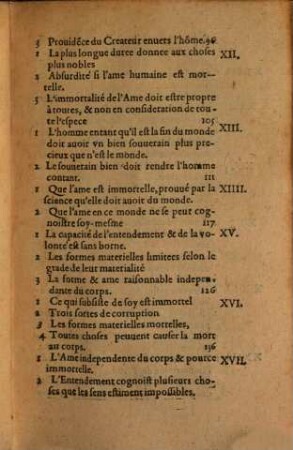 3 Prouidēce du Createur enuers l'hōme. 96
1 La plus longue duree donnee aux choses XII.
plus nobles
2 Absurdité si l'ame humaine est mor-
telle.
3 L'immortalité de l'Ame doit estre propre
à toutes, & non en consideration de tou-
te l'espece 105
1 L'homme entant qu'il est la fin du monde XIII.
doit auoir vn bien souuerain plus pre-
cieux que n'est le monde.
2 Le souuerain bien doit rendre l'homme
contant. 111
1 Que l'ame est immortelle, prouué par la XIIII.
science qu'elle doit auoir du monde.
2 Que l'ame en ce monde ne se peut cog-
noistre soy-mesme 117
1 La capacité de l'entendement & de la vo- XV.
lonté est sans borne.
2 Les formes materielles limitees selon le
grade de leur materialité
3 La forme & ame raisonnable indepen-
dante du corps. 126
1 Ce qui subsiste de soy est immortel XVI.
2 Trois sortes de corruption
3 Les formes materielles mortelles,
4 Toutes choses peuuent causer la mort
au corps. 136
1 L'Ame independente du corps & pource XVII.
immortelle.
2 L'Entendement cognoist plusieurs cho-
ses que les sens estiment impossibles.